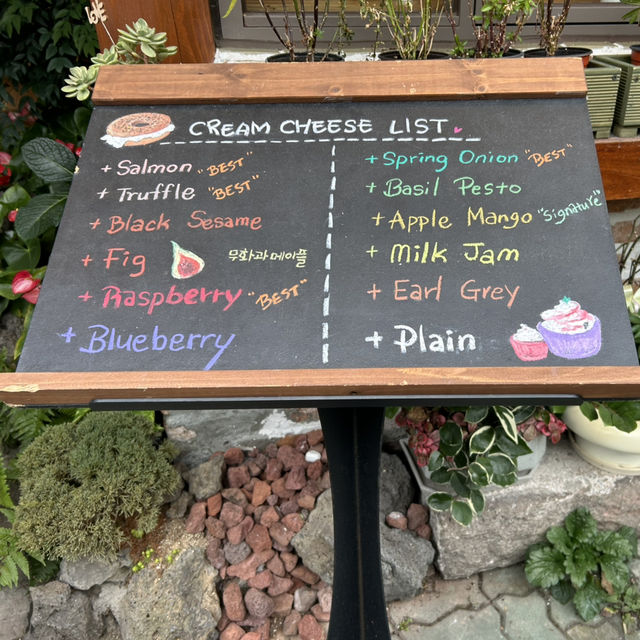 CREAM CHEESE LIST
+ Salmon "BEST"
+ Truffle "BEST"
+ Black Sesame
+ Fig 무화과메이플
+ Raspberry "BEST"
+ Blueberry
+ Spring Onion "BEST"
+ Basil Pesto
+ Apple Mango "Signature"
+ Milk Jam
+ Earl Grey
+ Plain